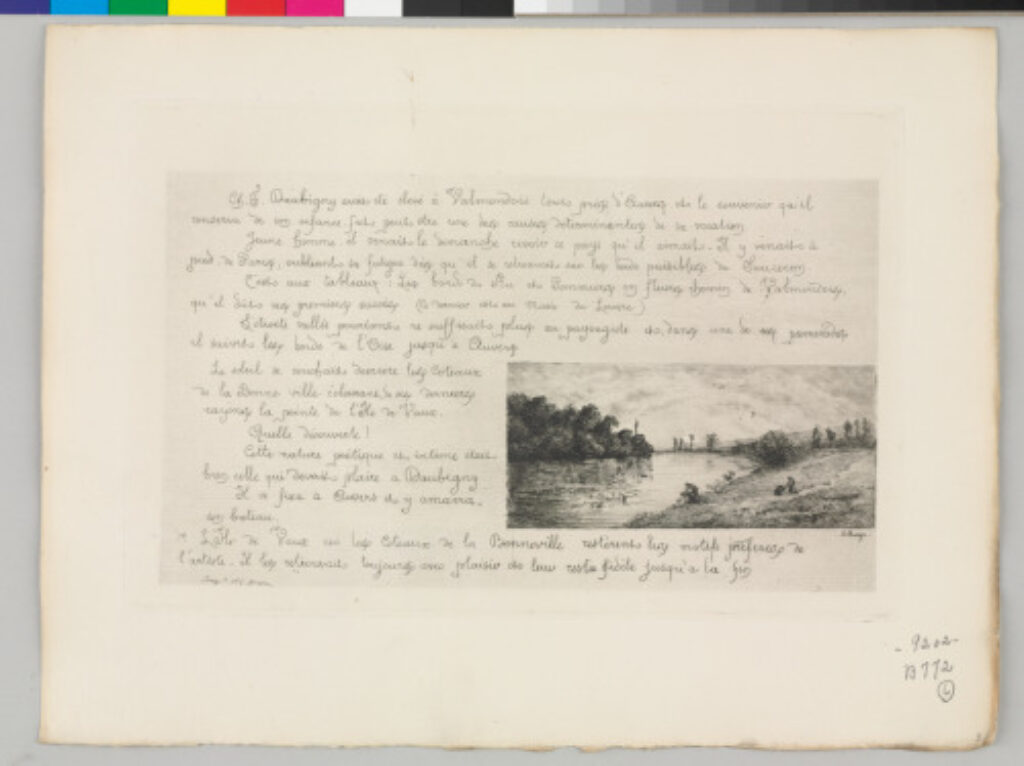 Ch. F. Daubigny avait été élevé à Valmondois tout près d'Auvers et le souvenir qu'il
conserva de son enfance fut peut être une des causes déterminantes de sa vocation
Jeune homme il venait le dimanche revoir ce pays qu'il aimait. Il y venait à
pied de Paris, oubliant sa fatigue dès qu'il se retrouvait sur les bords paisibles du
aux tableaux! Les bords du Ru et chemin de Valmondois,
qu'il dût ses premiers succès (Ce dernier est au Musée du Louvre)
L'étroite vallée ne suffisait plus au paysagiste et, dans une de ses promenades
il suivit les bords de l'Oise jusqu'à Auvers
Le soleil se couchait derrière les coteaux
de la Bonne ville éclairant de ses derniers
rayons la pointe de l'Île de Vaux.
Quelle découverte!
Cette nature poétique et intime était
bien celle qui devait plaire à Daubigny
Il se fixa à Auvers et y amarra
son bateau.
L'Île de Vaux et les Coteaux de la Bonneville restèrent les motifs préférés de
l'artiste. Il les retrouvait toujours avec plaisir et leur resta fidèle jusqu'à la fin
9202
B772
6